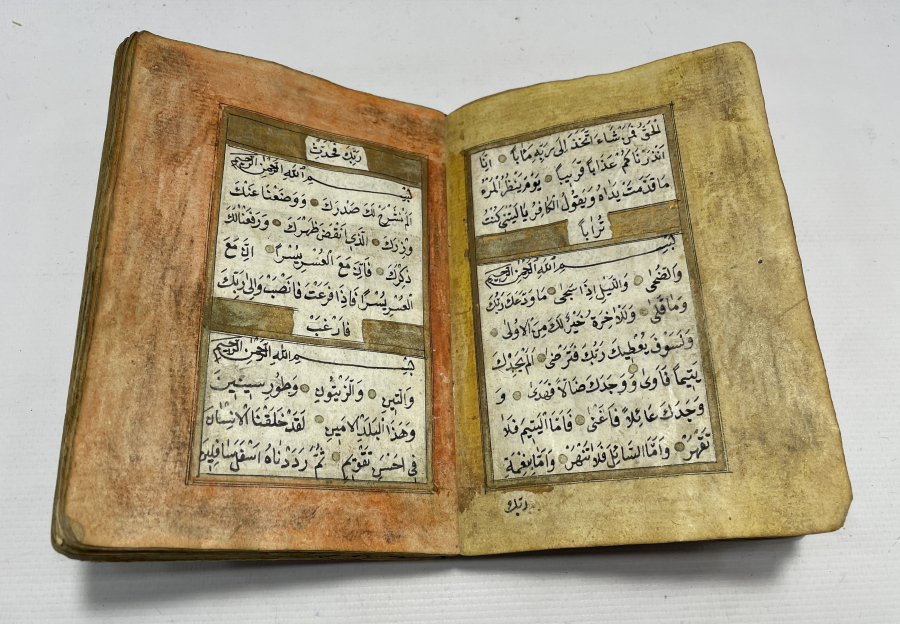 الحق فمن شاء اتخذ الى ربه مٰاباً انا
انذرناكم عذاباً قريباً يوم ينظر المرء
ما قدمت يداه ويقول الكافر ياليتنى كنت
تراباً
بسم الله الرحمن الرحيم
والضحى والليل اذا سجى ما ودعك ربك
وما قلى وللاخرة خير لك من الاولى
ولسوف يعطيك ربك فترضى الم يجدك
يتيماً فاوى ووجدك ضالا فهدى و
وجدك عائلاً فاغنى فاما اليتيم فلا
تقهر واما السائل فلا تنهر واما بنعمة
ربك
ربك فحدث
بسم الله الرحمن الرحيم
الم نشرح لك صدرك ووضعنا عنك
وزرك الذى انقض ظهرك ورفعنا لك
ذكرك فان مع العسر يسراً ان مع
العسر يسراً فاذا فرغت فانصب والى ربك
فارغب
بسم الله الرحمن الرحيم
والتين والزيتون وطور سينين
وهذا البلد الامين لقد خلقنا الانسان
فى احسن تقويم ثم رددناه اسفل سافلين